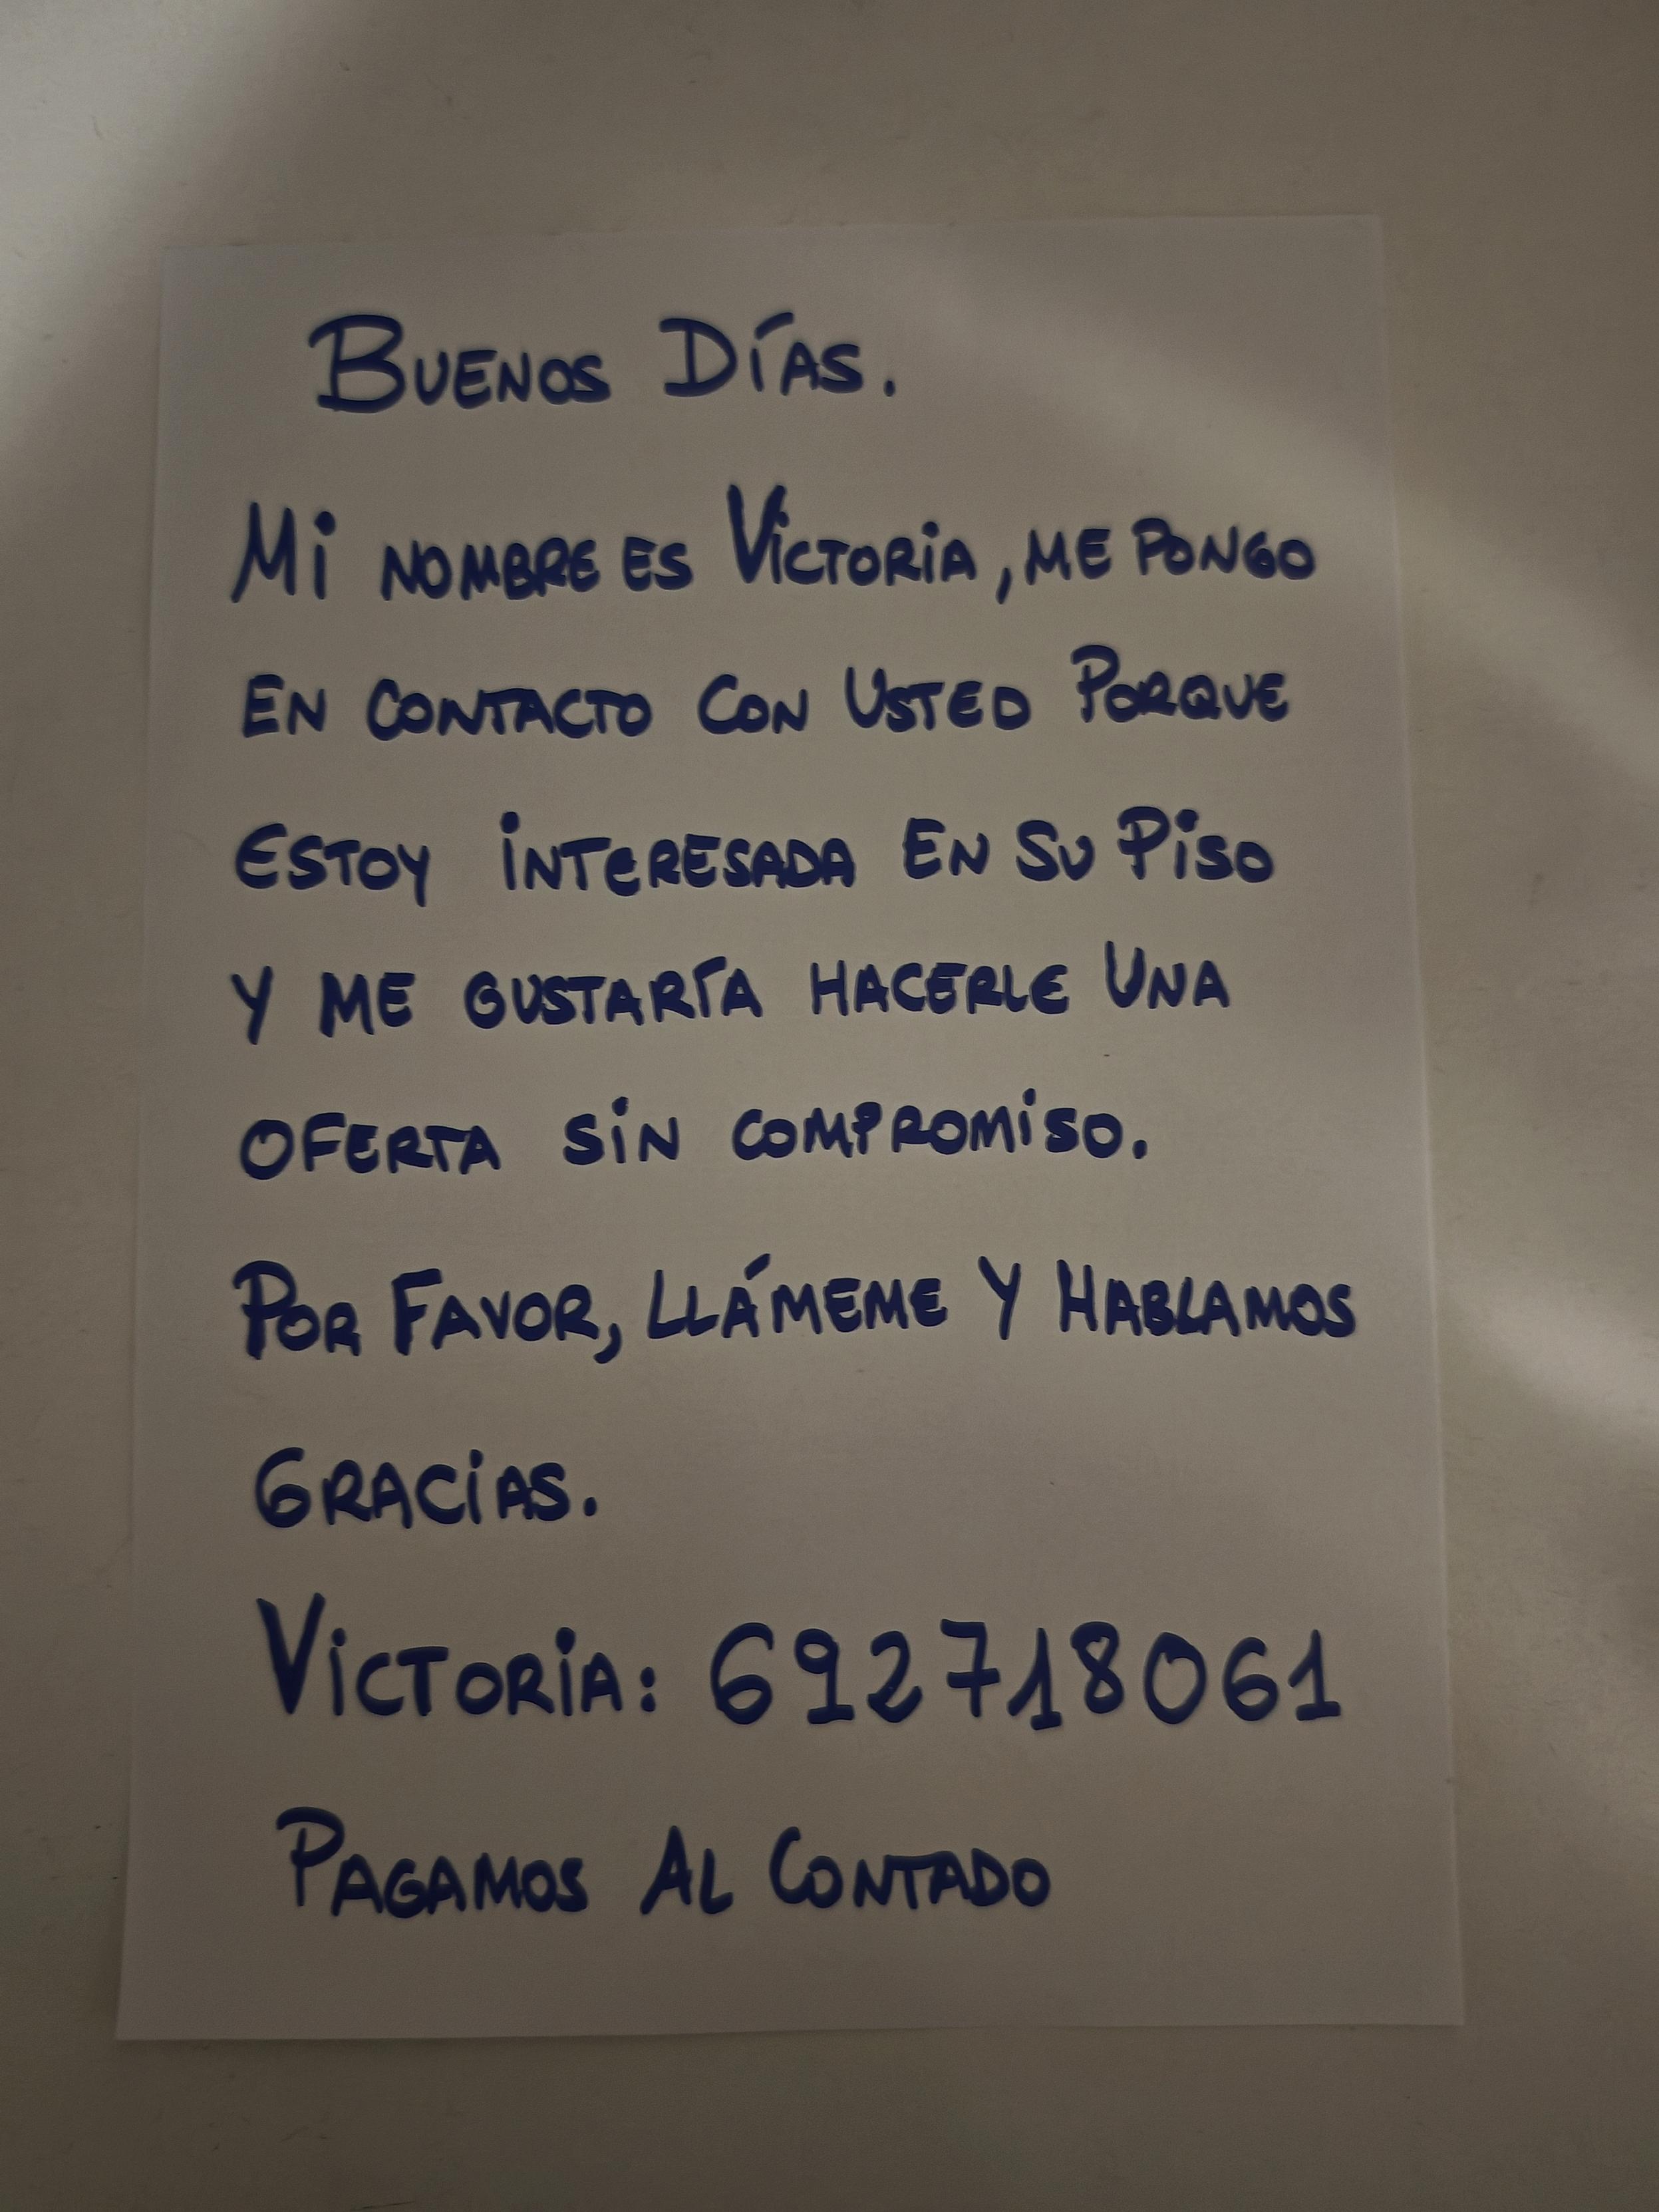 BUENOS DÍAS.
Mi NOMBRE ES VICTORiA, ME PONGO
EN CONTACTO CON USTED PORQUE
ESTOY iNTERESADA EN SU PiSO
Y ME GUSTARÍA HACERLE UNA
OFERTA SiN COMPROMiSO.
POR FAVOR, LLÁMEME Y HABLAMOS
GRACiAS.
ViCTORiA: 692718061
PAGAMOS AL CONTADO